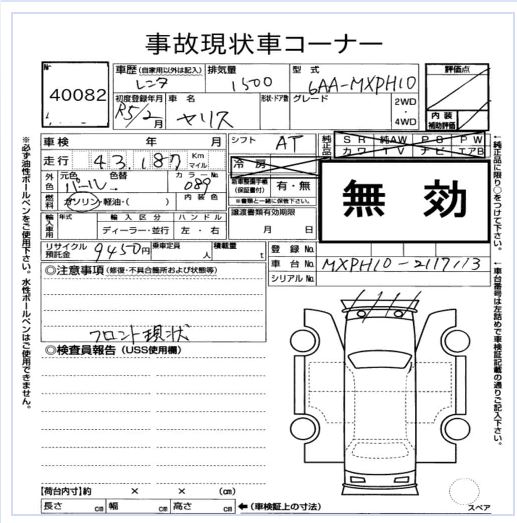 事故現状車コーナー
№ 40082
車歴(自家用以外は記入) 排気量 型式 評価点
レンタ 1500 6AA-MXPH10
初度登録年月 車名 形状・ドア数 グレード 2WD・4WD 内装補助評価
R5/2月 ヤリス
車検 年 月 シフト AT 純正品 SR 純AW PS PW
カワ TV ナビ エアB
走行 43,187 Km マイル 冷房
外色 元色 色替 カラーNo. 089
パール 内装色
新車整備手帳(保証書付) 有・無
※書類と一緒に保管下さい。
無効
燃料 ガソリン・軽油・( )
譲渡書類有効期限
月 日
輸入車用 年式 輸入区分 ハンドル
ディーラー・並行 左・右
リサイクル預託金 9450円 乗車定員 人 積載量 t
登録No.
車台No. MXPH10-2117113
シリアルNo.
◎注意事項(修復・不具合箇所および状態等)
フロント現状
◎検査員報告(USS使用欄)
【荷台内寸】約 × × (㎝)
長さ ㎝ 幅 ㎝ 高さ ㎝ ←(車検証上の寸法)
スペア
※必ず油性ボールペンをご使用下さい。水性ボールペンはご使用できません。
←純正品に限り○をつけて下さい。
←車台番号は左詰めで車検証記載の通りご記入下さい。